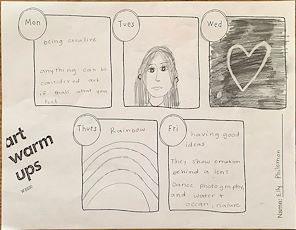 Mon
being creative
anything can be
considered art
if thats what you
feel
Tues
Wed
art
warm
ups
WEEK:
Thurs
Rainbow
Fri
having good
ideas
They show emotion
behind a lens
Dance, photography,
and water +
ocean, nature
Name: Elly Philemon